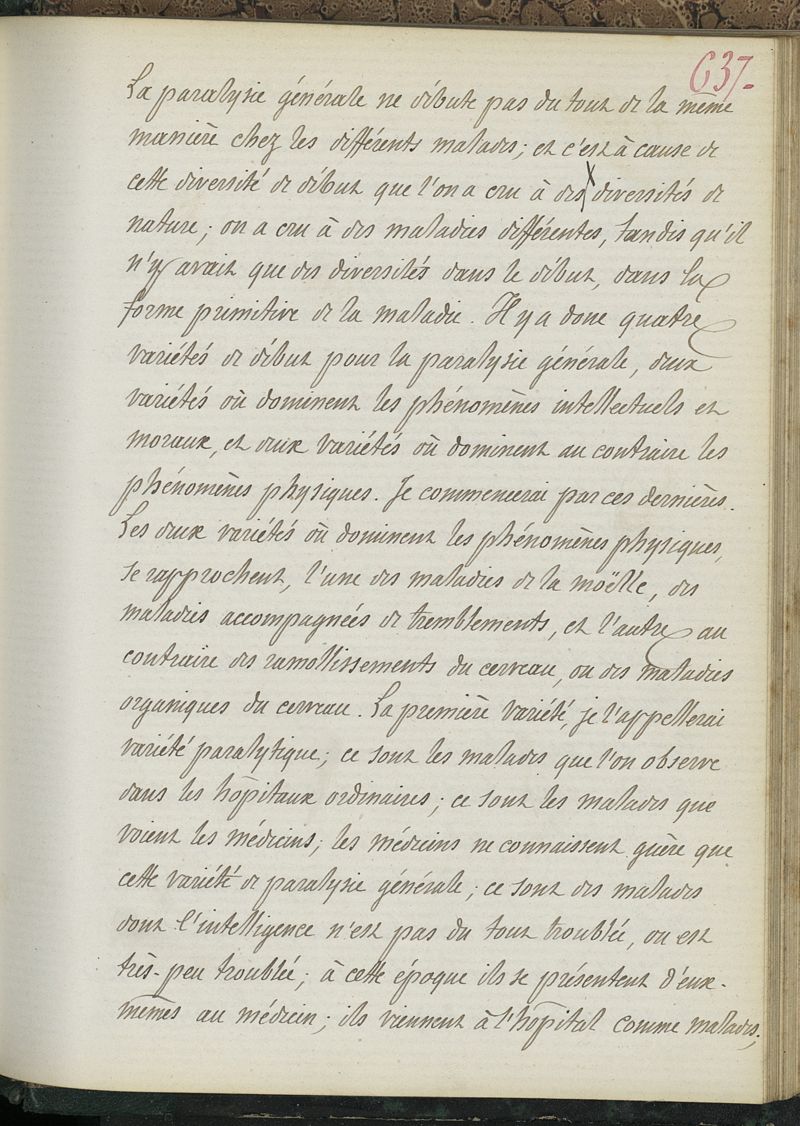 637-
La paralysie générale ne débute pas du tout de la même
manière chez les différents malades; et c'est à cause de
cette diversité de début que l'on a cru à des diversités de
nature; on a cru à des maladies différentes, tandis qu'il
n'y avait que des diversités dans le début, dans la
forme primitive de la maladie. Il y a donc quatre
variétés de début pour la paralysie générale, deux
variétés où dominent les phénomènes intellectuels et
moraux, et deux variétés où dominent au contraire les
phénomènes physiques. Je commencerai par ces dernières.
Les deux variétés où dominent les phénomènes physiques,
se rapprochent, l'une des maladies de la moëlle, des
maladies accompagnées de tremblements, et l'autre au
contraire des ramollissements du cerveau, ou des maladies
organiques du cerveau. La première variété, je l'appellerai
variété paralytique; ce sont les malades que l'on observe
dans les hôpitaux ordinaires; ce sont les malades que
voient les médecins; les médecins ne connaissent guère que
cette variété de paralysie générale; ce sont des malades
dont l'intelligence n'est pas du tout troublée, ou est
très-peu troublée; à cette époque ils se présentent d'eux-
mêmes au médecin; ils viennent à l'hôpital comme malades;